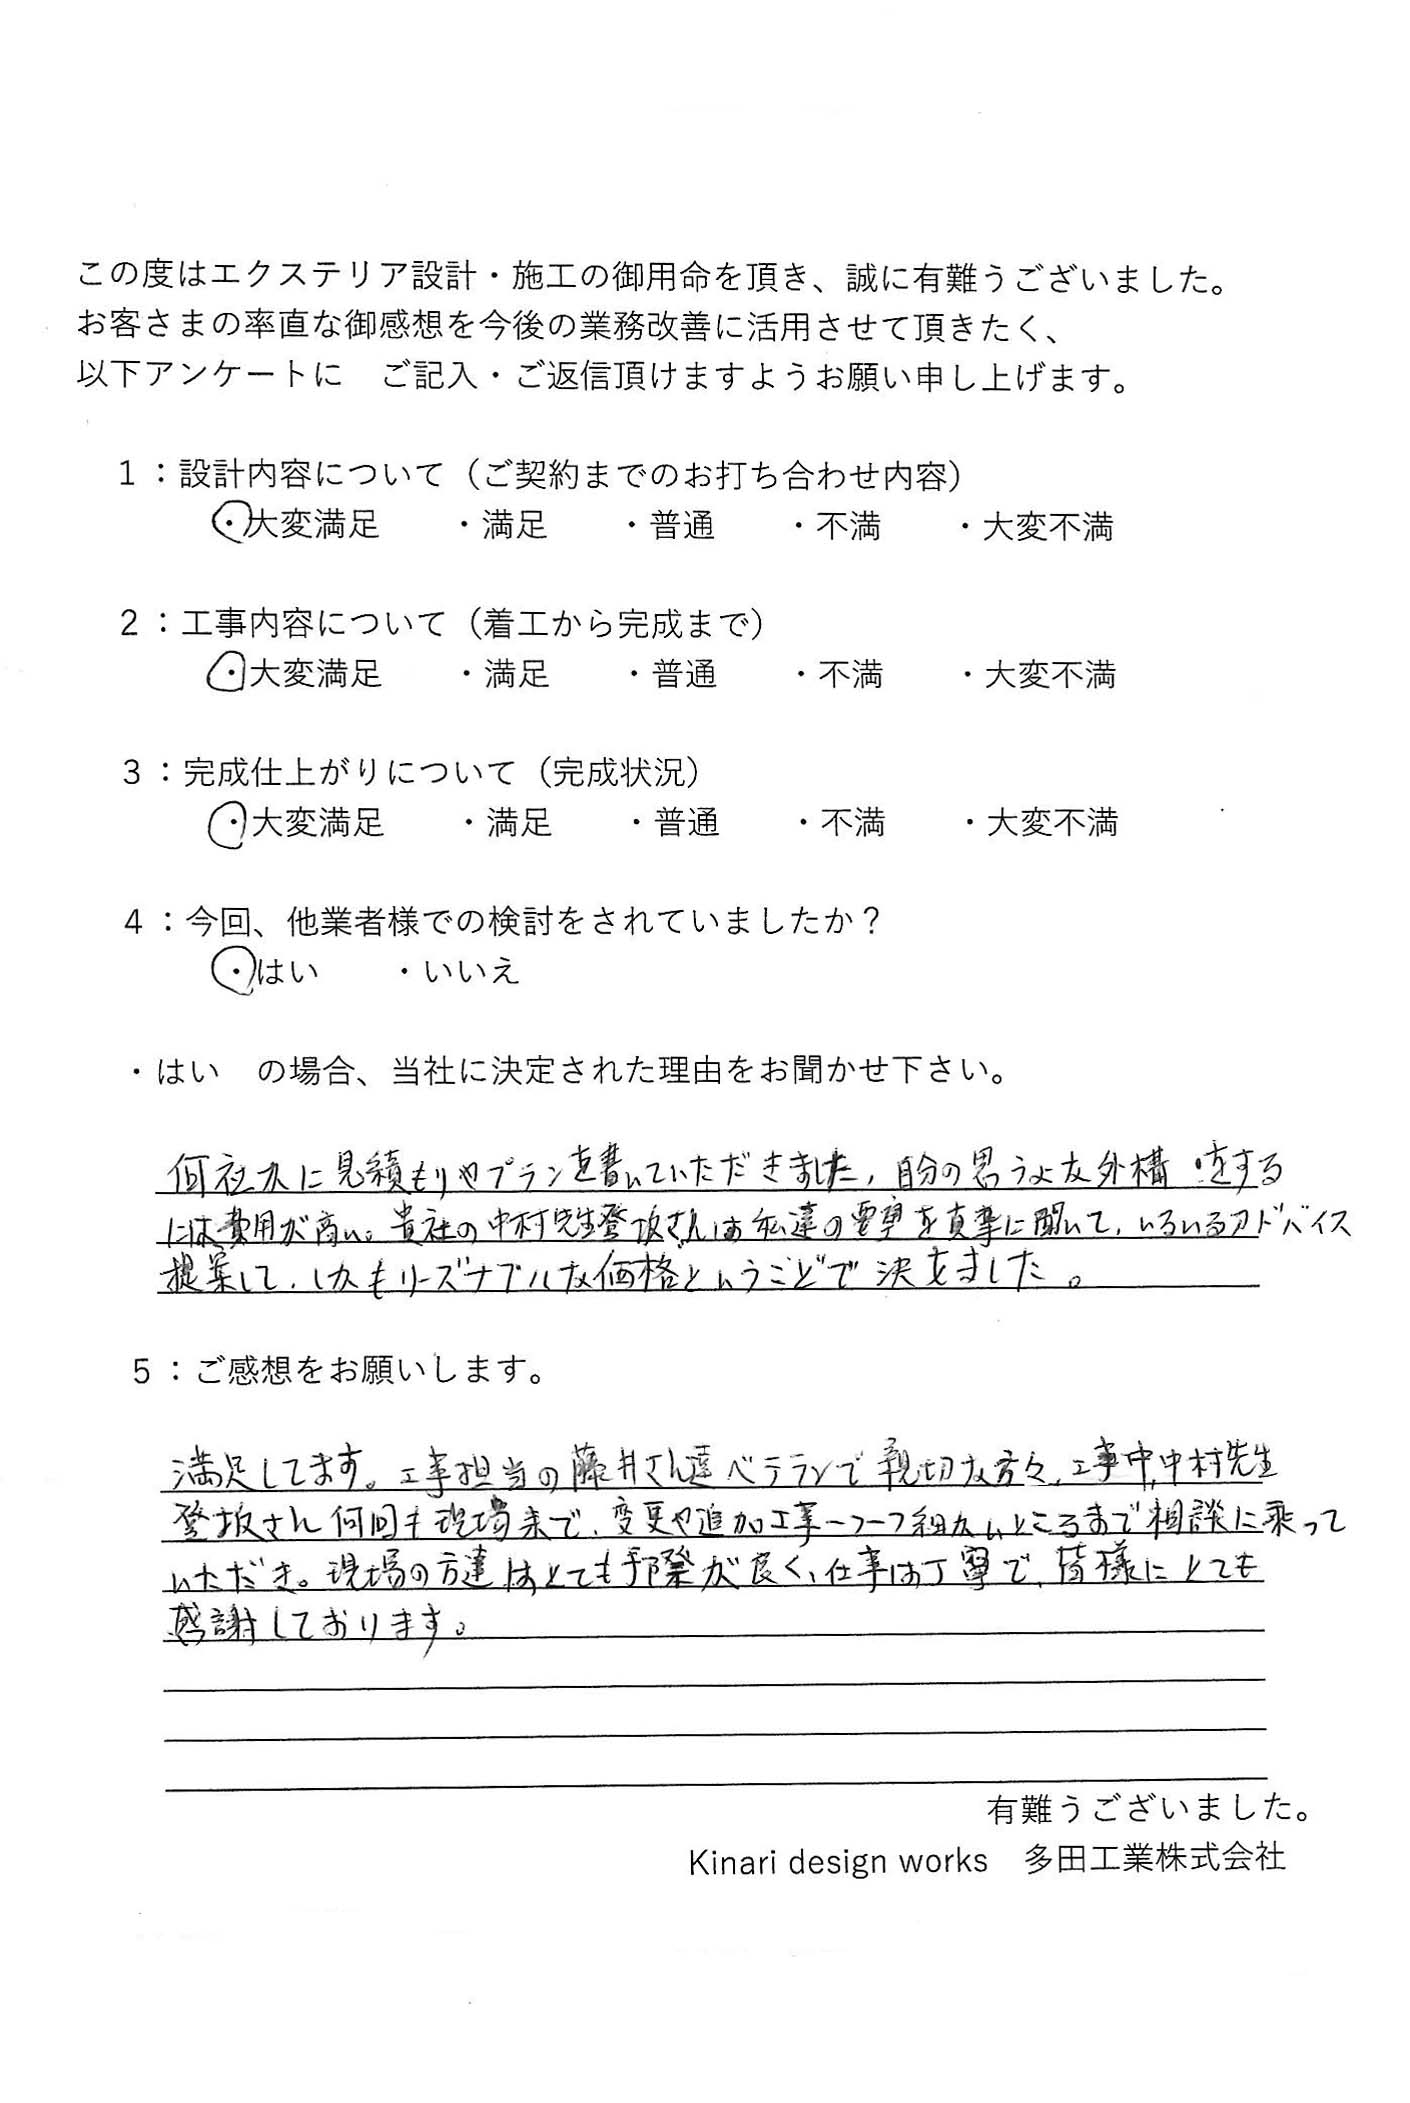 この度はエクステリア設計・施工の御用命を頂き、誠に有難うございました。
お客さまの率直な御感想を今後の業務改善に活用させて頂きたく、
以下アンケートに　ご記入・ご返信頂けますようお願い申し上げます。
1：設計内容について（ご契約までのお打ち合わせ内容）
・大変満足　・満足　・普通　・不満　・大変不満
2：工事内容について（着工から完成まで）
・大変満足　・満足　・普通　・不満　・大変不満
3：完成仕上がりについて（完成状況）
・大変満足　・満足　・普通　・不満　・大変不満
4：今回、他業者様での検討をされていましたか？
・はい　・いいえ
・はい　の場合、当社に決定された理由をお聞かせ下さい。
何社カに見積もりやプランを書いていただきました，自分の思うような外構をする
には費用が高い。貴社の中村先生登坂さんは私達の要望を真摯に聞いて，いろいろアドバイス
提案して，しかもリーズナブルな価格ということで決めました。
5：ご感想をお願いします。
満足してます。工事担当の藤井さん達ベテランで親切な方々，工事中，中村先生
登坂さん何回も現場来て，変更や追加工事一つ一つ細かいところまで相談に乗って
いただき。現場の方達はとても手際が良く，仕事は丁寧で，皆様にとても
感謝しております。
有難うございました。
Kinari design works　多田工業株式会社